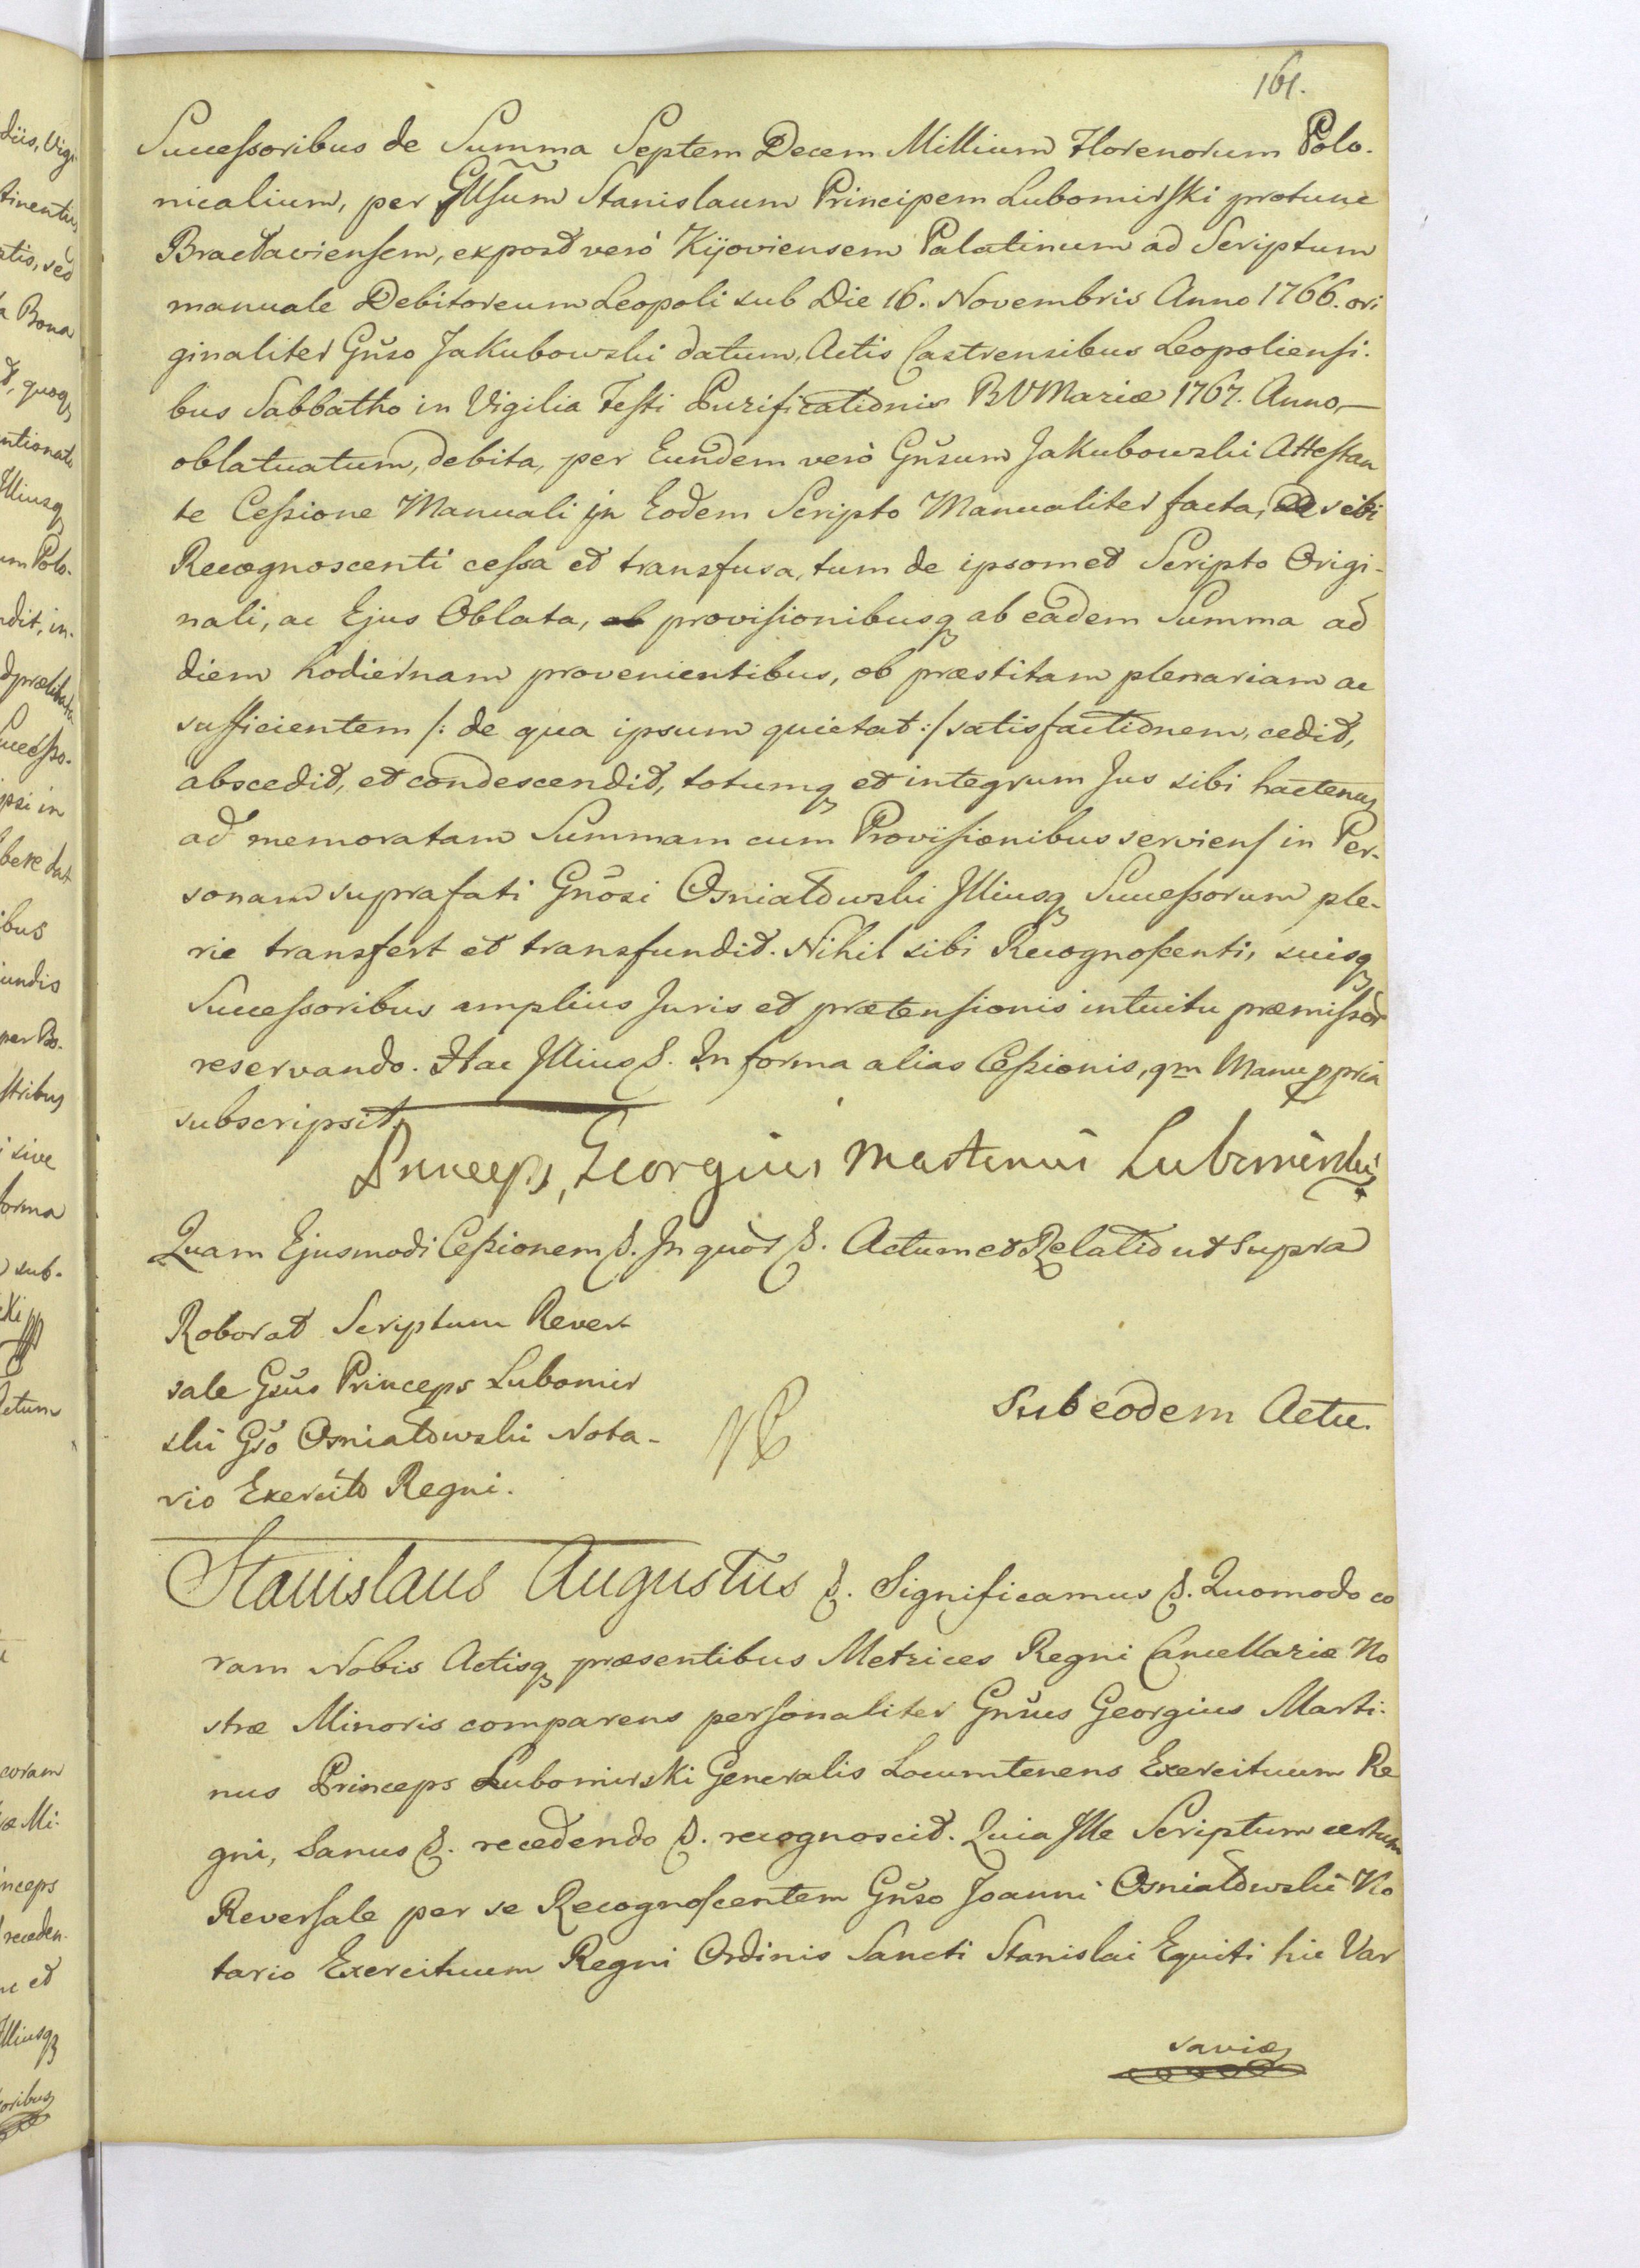 161.
Successoribus de Summa Septem Decem Millium Florenorum Polo-
nicalium, per Illsum Stanislaum Principem Lubomirski protunc
Braclaviensem, expost verò Kijoviensem Palatinum ad Scriptum
manuale Debitoreum Leopoli sub Die 16. Novembris Anno 1766. ori
ginaliter Gnso Jakubowski datum, Actis Castrensibus Leopoliensi-
bus Sabbatho in Vigilia Festi Purificationis BVMariæ 1767. Anno,—
oblatuatum, debita, per Eundem verò Gnsum Jakubowski Attestan
te Cessione Manuali in Eodem Scripto Manualiter facta, sibi
Recognoscenti cessa et transfusa, tum de ipsomet Scripto Origi-
nali, ac Ejus Oblata, provisionibusq ab eadem Summa ad
diem hodiernam provenientibus, ob præstitam plenariam ac
sufficientem /: de qua ipsum quietat :/ satisfactionem, cedit,
abscedit, et condescendit, totumq et integrum Jus sibi hactenus
ad memoratam Summam cum Provisionibus serviens in Per-
sonam suprafati Gnosi Osniałowski Illiusq Successorum ple-
rie transfert et transfundit. Nihil sibi Recognoscenti, suisq
Successoribus amplius Juris et prætensionis intuitu præmissor
reservando. Hac Illius &. In forma alias Cessionis, qm Manu ppria
subscripsit.
Princeps, Georgius Martinus Lubomirski
Quam Ejusmodi Cessionem &. In quor &. Actum et Relatio ut Supra
Roborat Scriptum Rever-
sale Gsus Princeps Lubomir
ski Gso Osniałowski Nota-
rio Exercito Regni.
Sub eodem Actu.
Stanislaus Augustus &. Significamus &. Quomodo co
ram Nobis Actisq præsentibus Metrices Regni Cancellariæ No
stræ Minoris comparens personaliter Gnsus Georgius Marti-
nus Princeps Lubomirski Generalis Locumtenens Exercituum Re
gni, Sanus &. recedendo &. recognoscit. Quia Ille Scriptum certum
Reversale per se Recognoscentem Gnso Joanni Osniałowski No
tario Exercituum Regni Ordinis Sancti Stanislai Equiti hic Var
saviæ